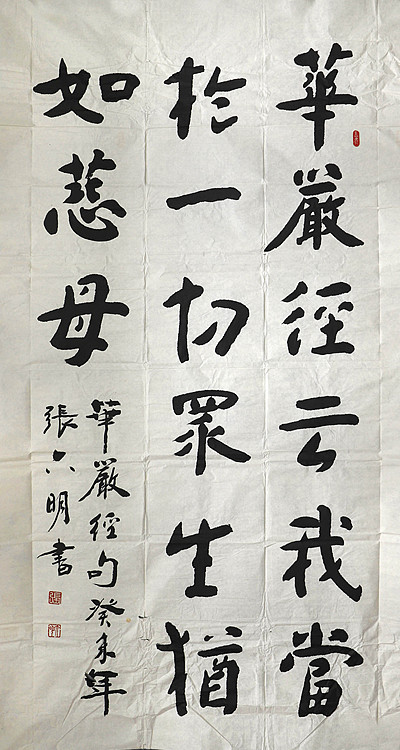 華嚴徑云我當
於一切眾生猶
如慈母
華嚴徑句癸未年
張六明書